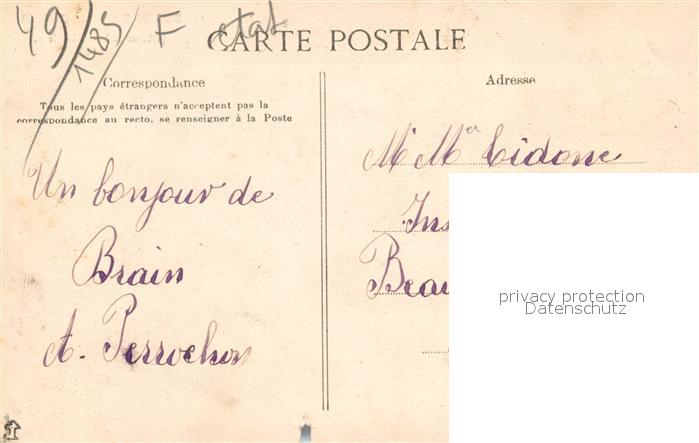 49/1485 F etat
CARTE POSTALE
Correspondance
Tous les pays étrangers n'acceptent pas la
correspondance au recto, se renseigner à la Poste
Un bonjour de
Brain
A. Perrochon
Adresse
Mr Mer Cidone
Ins
Beau
privacy protection
Datenschutz